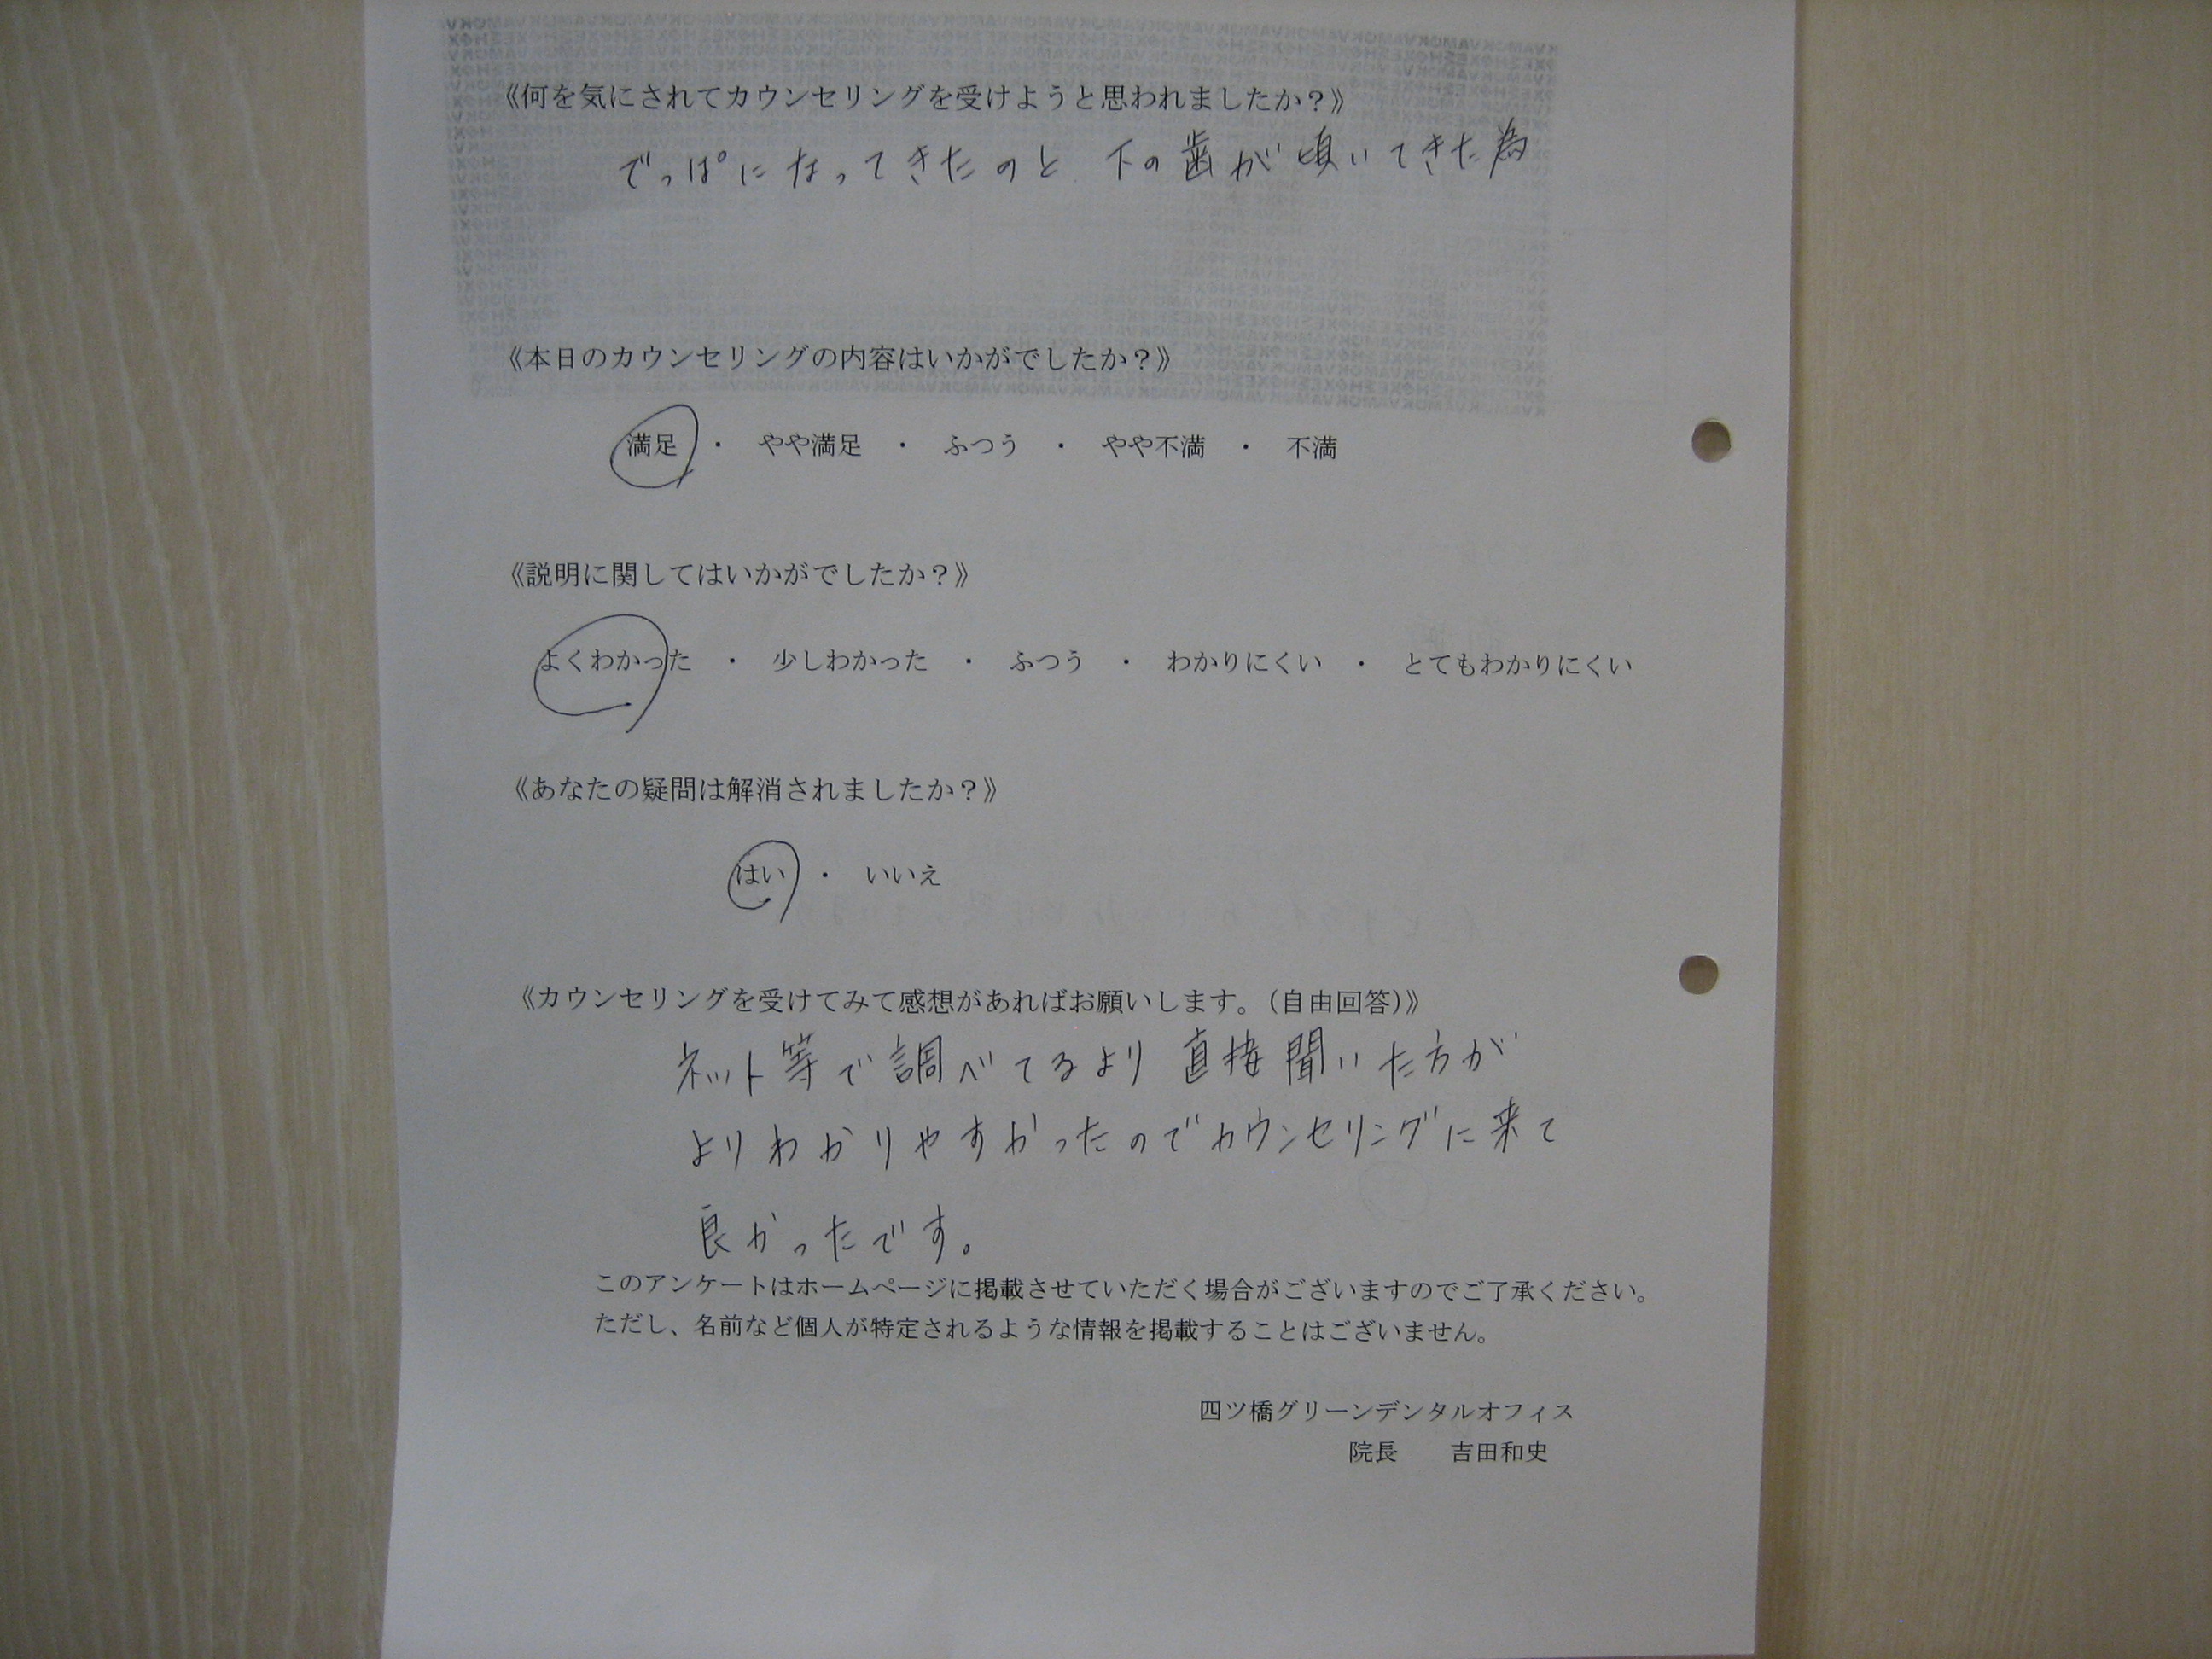 《何を気にされてカウンセリングを受けようと思われましたか？》
でっぱになってきたのと 下の歯が傾いてきた為
《本日のカウンセリングの内容はいかがでしたか？》
満足 ・ やや満足 ・ ふつう ・ やや不満 ・ 不満
《説明に関してはいかがでしたか？》
よくわかった ・ 少しわかった ・ ふつう ・ わかりにくい ・ とてもわかりにくい
《あなたの疑問は解消されましたか？》
はい ・ いいえ
《カウンセリングを受けてみて感想があればお願いします。（自由回答）》
ネット等で調べてるより 直接聞いた方が
よりわかりやすかったのでカウンセリングに来て
良かったです。
このアンケートはホームページに掲載させていただく場合がございますのでご了承ください。
ただし、名前など個人が特定されるような情報を掲載することはございません。
四ツ橋グリーンデンタルオフィス
院長 吉田和史